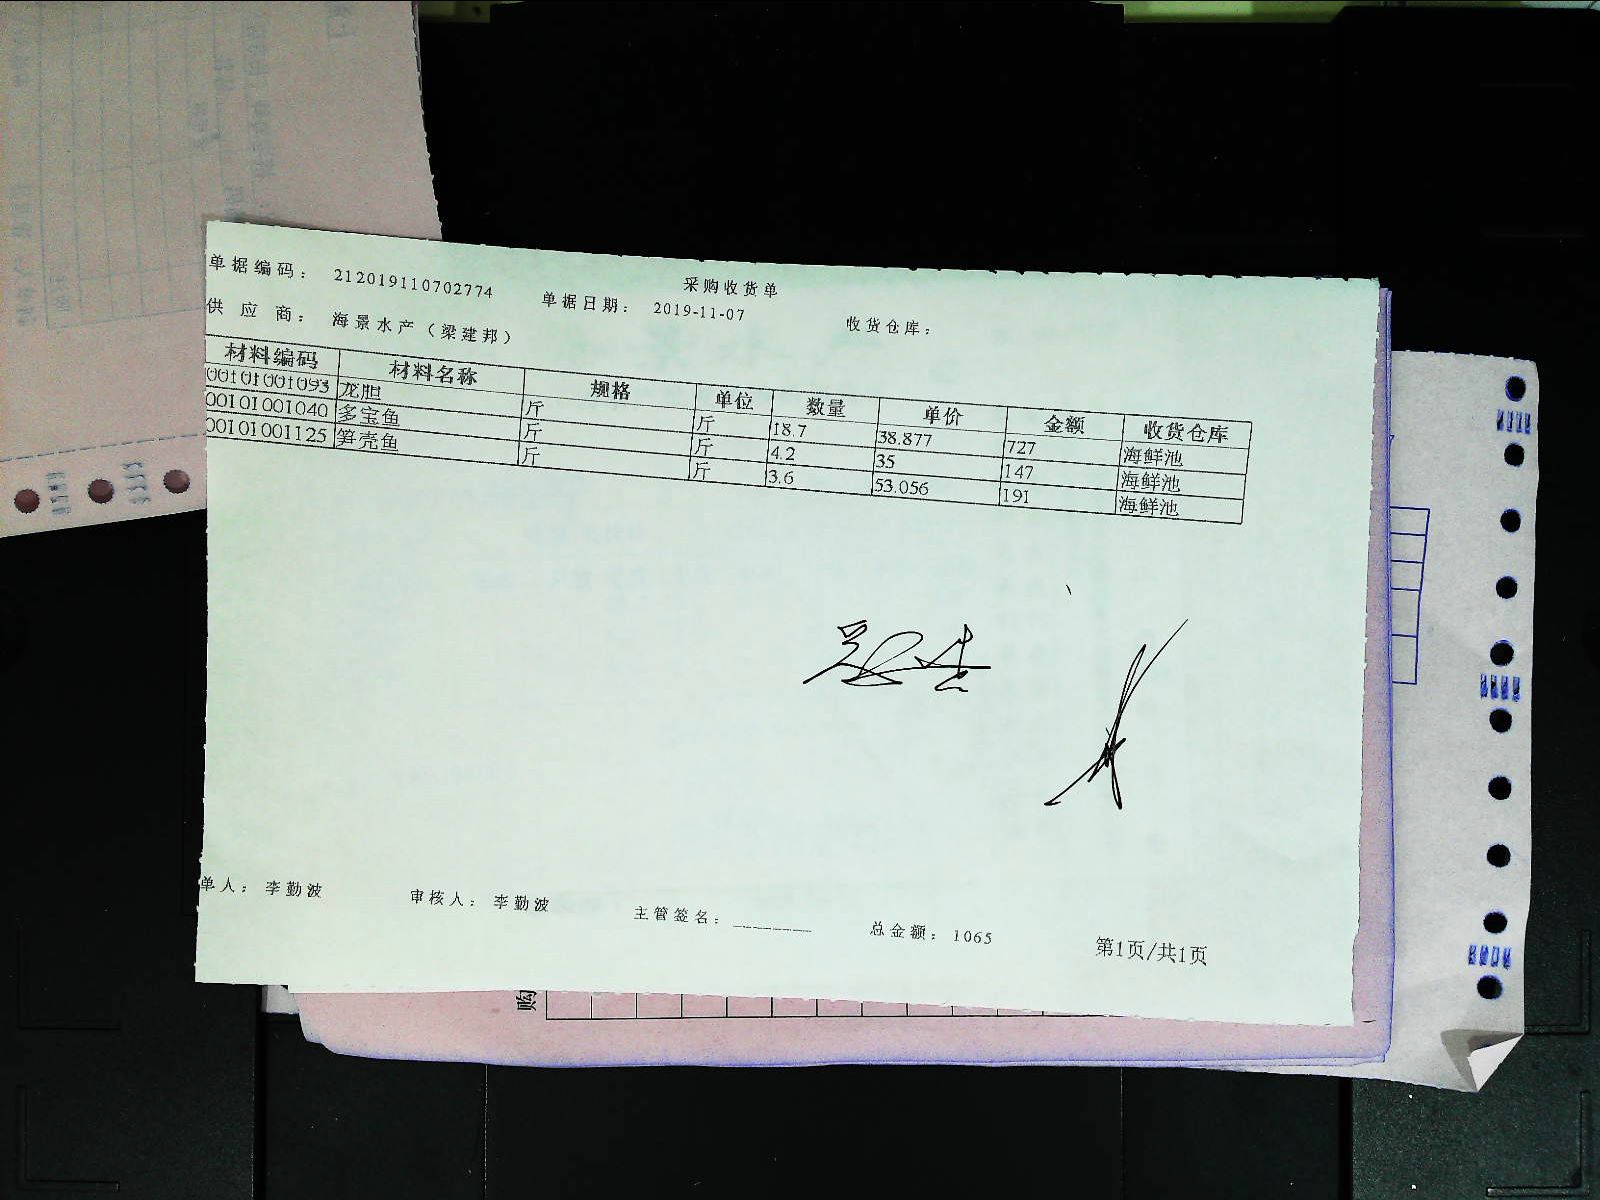 采购收货单
单据编码： 212019110702774 单据日期： 2019-11-07 收货仓库：
供 应 商： 海景水产（梁建邦）
材料编码 材料名称 规格 单位 数量 单价 金额 收货仓库
00101001093 龙胆 斤 斤 18.7 38.877 727 海鲜池
00101001040 多宝鱼 斤 斤 4.2 35 147 海鲜池
00101001125 笋壳鱼 斤 斤 3.6 53.056 191 海鲜池
单人： 李勤波 审核人： 李勤波 主管签名：________ 总金额： 1065 第1页/共1页
购